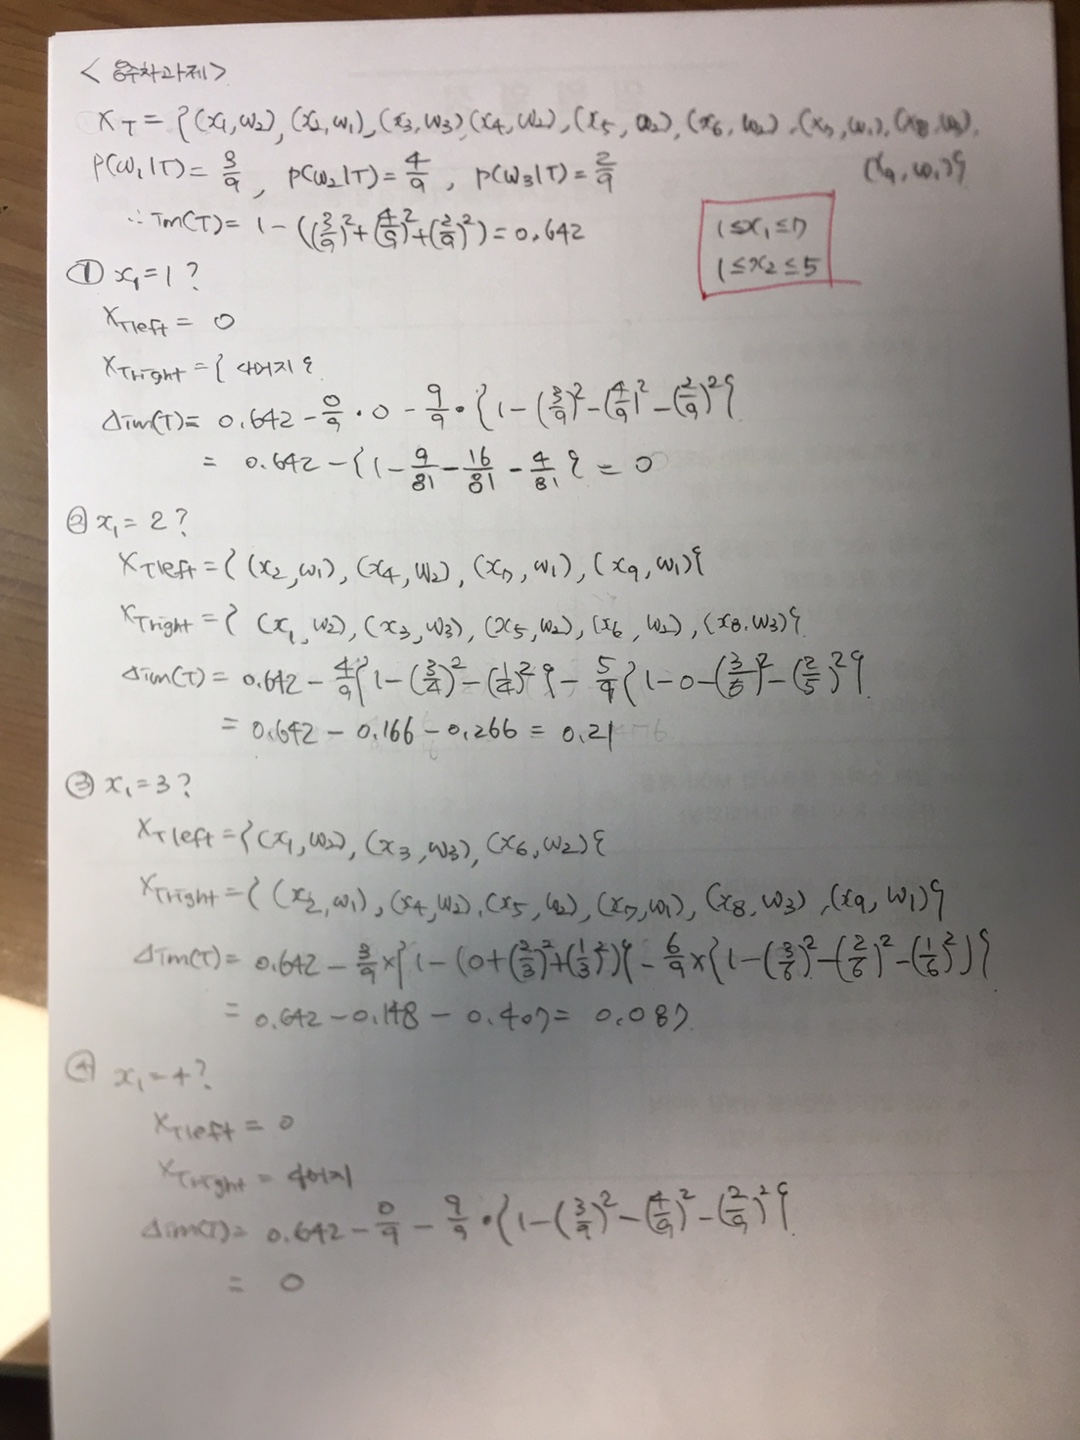 < 8주차과제>
X_T = {(x1,ω2), (x2,ω1), (x3,ω3), (x4,ω2), (x5,ω2), (x6,ω2), (x7,ω1), (x8,ω3),
(x9,ω1)}
P(ω1|T) = 3/9, P(ω2|T) = 4/9, P(ω3|T) = 2/9
∴ Im(T) = 1 - ((3/9)² + (4/9)² + (2/9)²) = 0.642
1≤x1≤7
1≤x2≤5
① x1=1?
X_Tleft = 0
X_Tright = { 나머지 }
ΔIm(T) = 0.642 - 0/9 • 0 - 9/9 • {1 - (3/9)² - (4/9)² - (2/9)²}
= 0.642 - {1 - 9/81 - 16/81 - 4/81} = 0
② x1=2?
X_Tleft = {(x2,ω1), (x4,ω2), (x7,ω1), (x9,ω1)}
X_Tright = {(x1,ω2), (x3,ω3), (x5,ω2), (x6,ω2), (x8,ω3)}
ΔIm(T) = 0.642 - 4/9{1 - (3/4)² - (1/4)²} - 5/9{1 - 0 - (3/5)² - (2/5)²}
= 0.642 - 0.166 - 0.266 = 0.21
③ x1=3?
X_Tleft = {(x1,ω2), (x3,ω3), (x6,ω2)}
X_Tright = {(x2,ω1), (x4,ω2), (x5,ω2), (x7,ω1), (x8,ω3), (x9,ω1)}
ΔIm(T) = 0.642 - 3/9 × {1 - (0 + (2/3)² + (1/3)²)} - 6/9 × {1 - (3/6)² - (2/6)² - (1/6)²)}
= 0.642 - 0.148 - 0.407 = 0.087
④ x1=4?
X_Tleft = 0
X_Tright = 나머지
ΔIm(T) = 0.642 - 0/9 - 9/9 • {1 - (3/9)² - (4/9)² - (2/9)²}
= 0